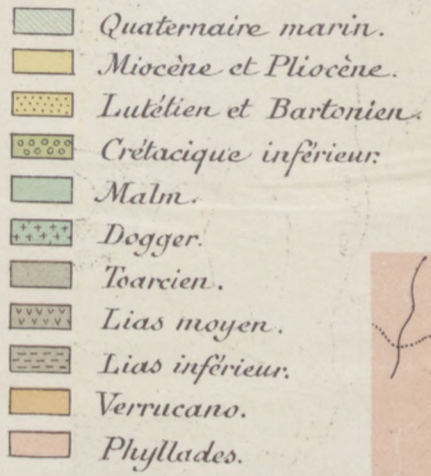 Quaternaire marin.
Miocène et Pliocène.
Lutétien et Bartonien.
Crétacique inférieur.
Malm.
Dogger.
Toarcien.
Lias moyen.
Lias inférieur.
Verrucano.
Phyllades.